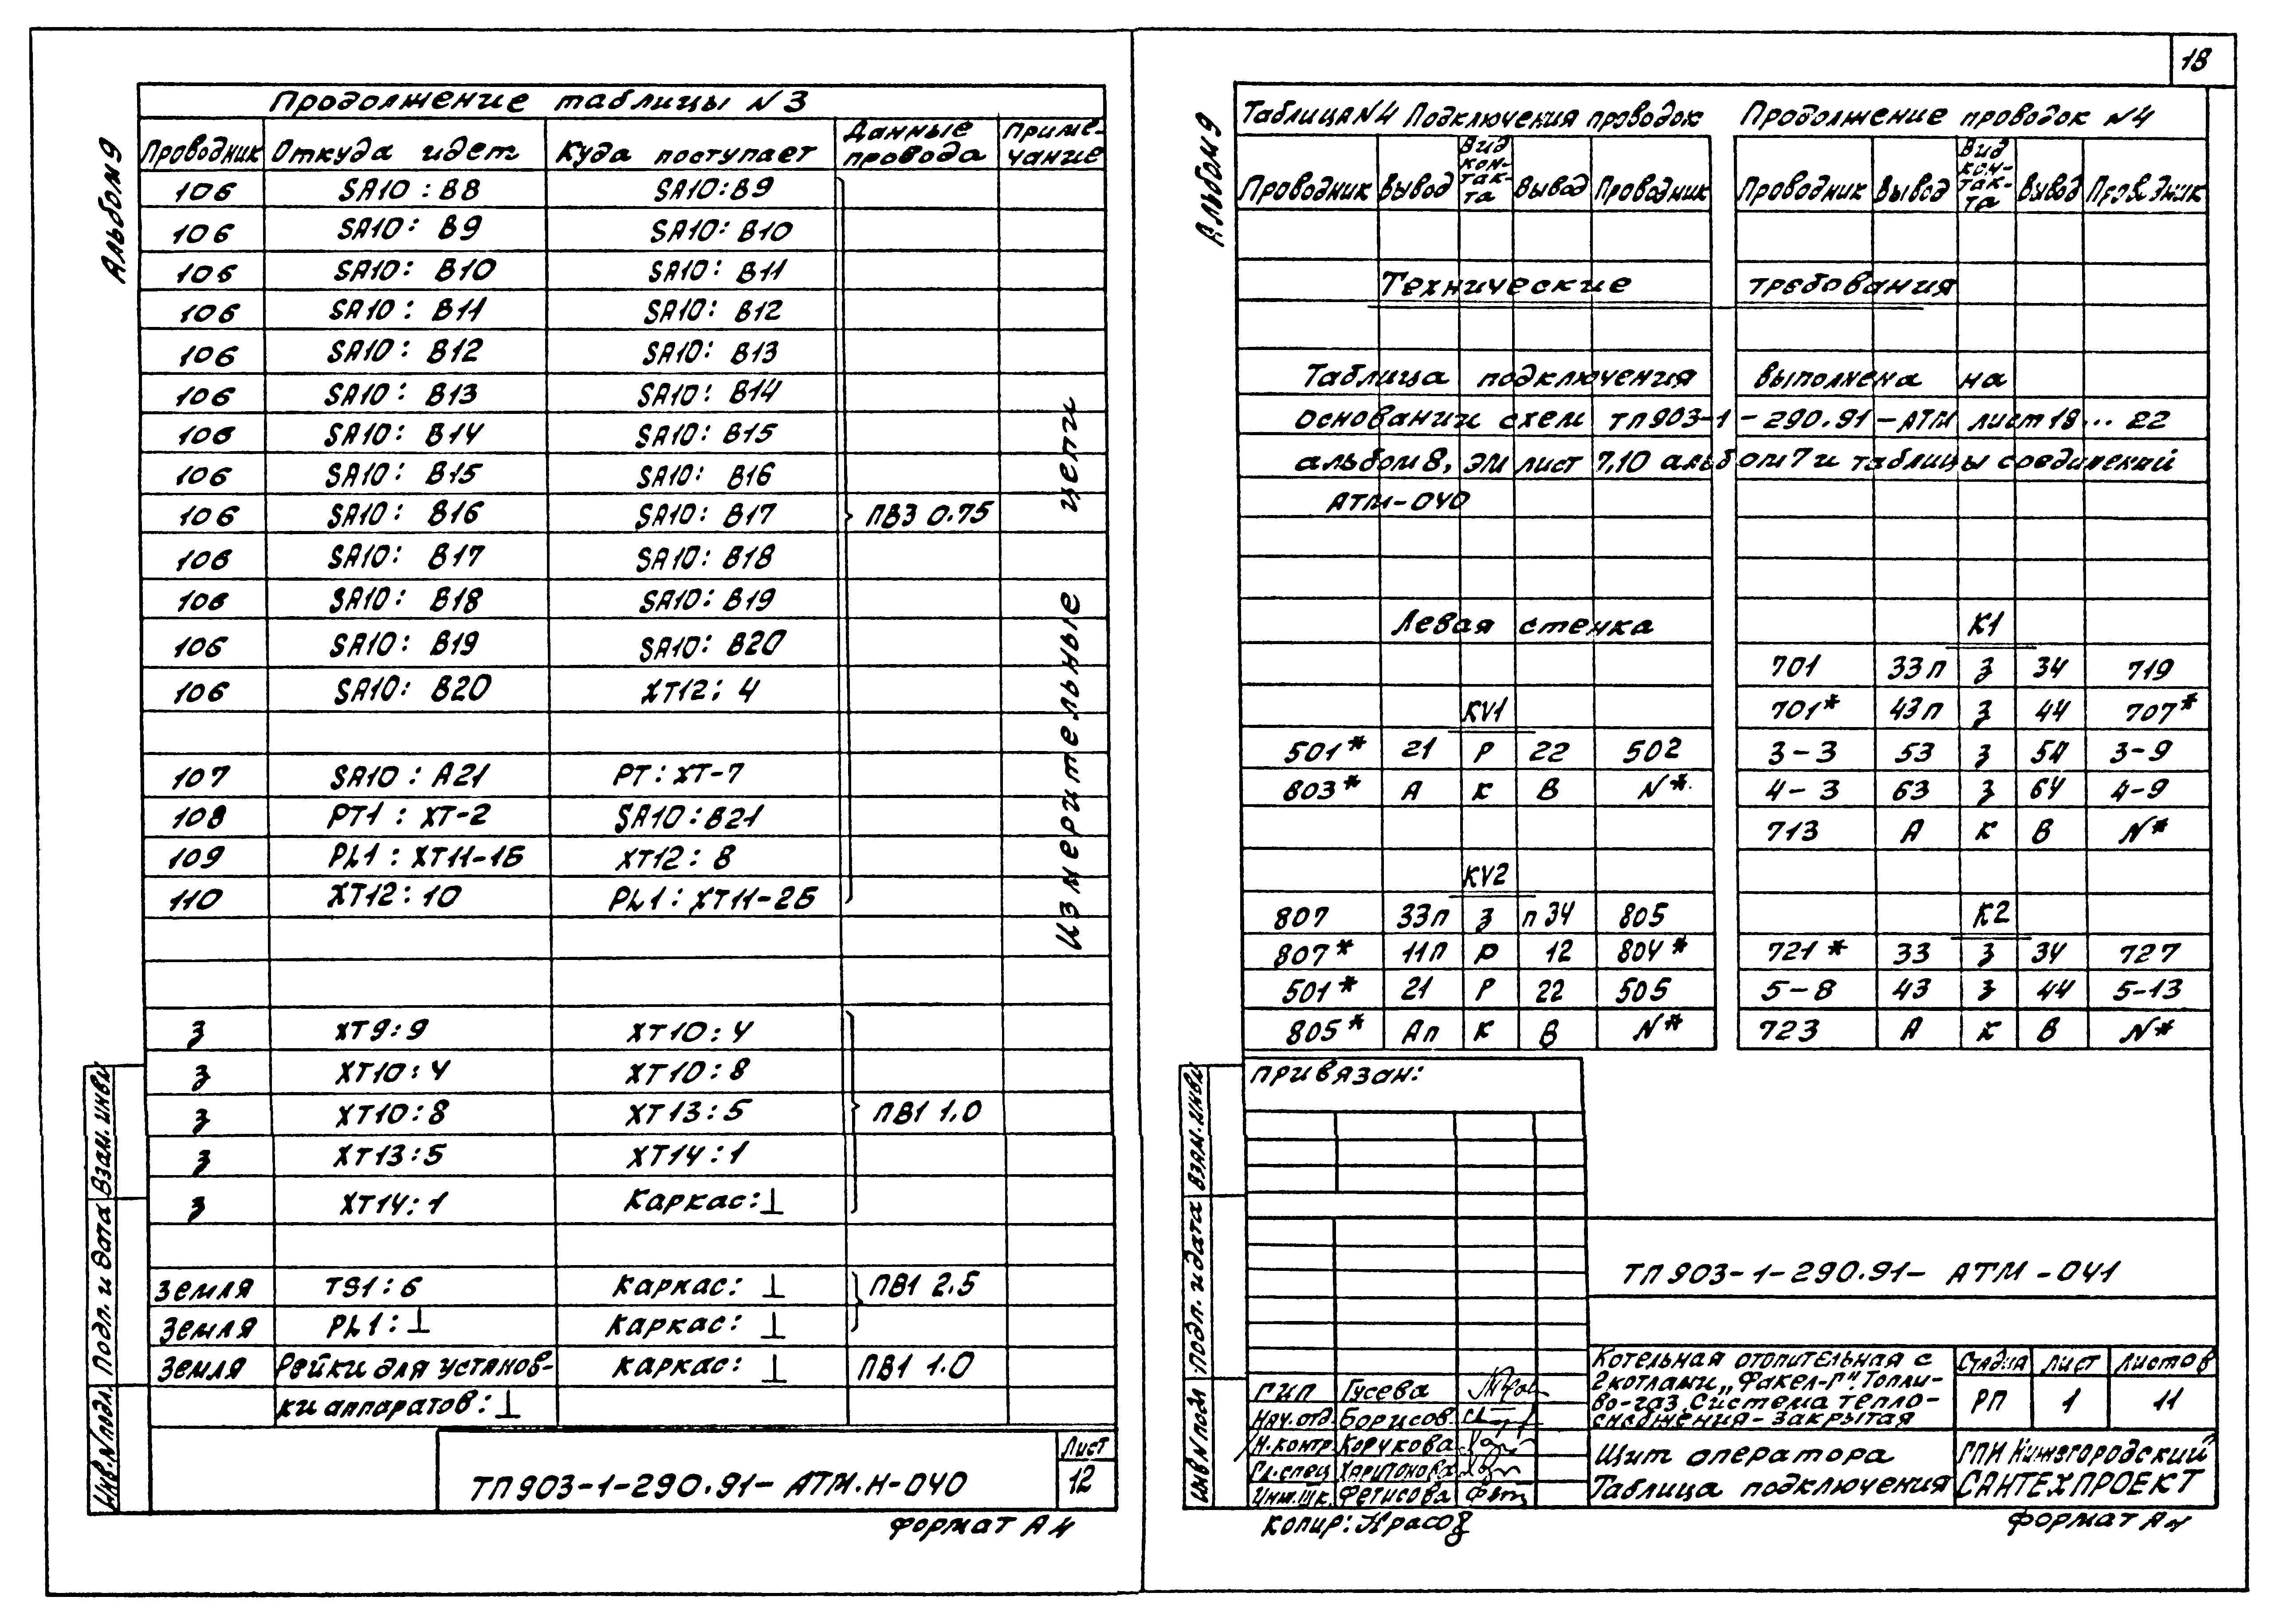 18
Альбом 9
Продолжение таблицы N3
Проводник Откуда идет Куда поступает Данные провода Примечание
106 SA10 : B8 SA10:B9
106 SA10: B9 SA10: B10
106 SA10: B10 SA10: B11
106 SA10: B11 SA10: B12
106 SA10: B12 SA10: B13
106 SA10: B13 SA10: B14
106 SA10: B14 SA10: B15
106 SA10: B15 SA10: B16
106 SA10: B16 SA10: B17 ПВ3 0.75
106 SA10: B17 SA10: B18
106 SA10: B18 SA10: B19
106 SA10: B19 SA10: B20
106 SA10: B20 XT12: 4
107 SA10 : A21 PT: XT-7
108 PT1 : XT-2 SA10:B21
109 PL1 : XT11-1Б XT12: 8
110 XT12:10 PL1: XT11-2Б
Измерительные цепи
З XT9:9 XT10:4
З XT10:4 XT10:8
З XT10:8 XT13:5 ПВ1 1.0
З XT13:5 XT14:1
З XT14:1 Каркас:⊥
Земля TS1:6 Каркас: ⊥ ПВ1 2.5
Земля PL1:⊥ Каркас: ⊥
Земля Рейки для установ- Каркас: ⊥ ПВ1 1.0
ки аппаратов:⊥
Инв.N подл. Подп. и дата Взам. инв.N
ТП903-1-290.91- АТМ.Н-040
Лист
12
Формат А4
Альбом 9
Таблица N4 Подключения проводок
Проводник Вывод Вид контакта Вывод Проводник
Продолжение проводок N4
Проводник Вывод Вид контакта Вывод Проводник
Технические требования
Таблица подключения выполнена на
основании схем ТП903-1-290.91-АТМ лист 18... 22
альбом 8, ЭМ лист 7,10 альбом 7 и таблицы соединений
АТМ-040
Левая стенка
KV1
501* 21 Р 22 502
803* А К В N*
KV2
807 33п З п34 805
807* 11п Р 12 804*
501* 21 Р 22 505
805* Ап К В N*
К1
701 33п З 34 719
701* 43п З 44 707*
3-3 53 З 54 3-9
4-3 63 З 64 4-9
713 А К В N*
К2
721* 33 З 34 727
5-8 43 З 44 5-13
723 А К В N*
Привязан:
Инв N подл Подп. и дата Взам. инв.N
ТП903-1-290.91- АТМ-041
ГИП Гусева
Нач.отд. Борисов
Н.контр. Корукова
Гл.спец Харитонова
Инж.IIк. Фетисова
Котельная отопительная с
2 котлами „Факел-Г". Топли-
во-газ. Система тепло-
снабжения- закрытая
Стадия Лист Листов
РП 1 11
Щит оператора
Таблица подключения
ГПИ Нижегородский
САНТЕХПРОЕКТ
Копир:
Формат А4